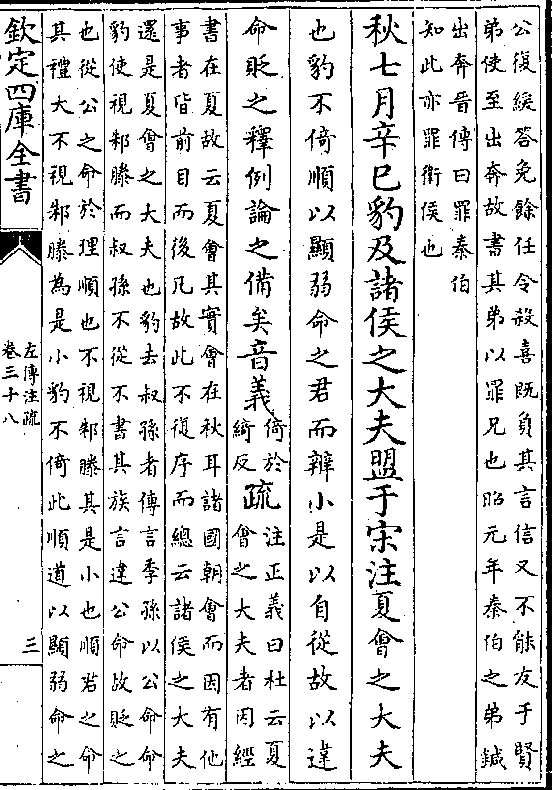 公復緩答免餘任令殺喜既負其言信又不能友于賢
弟使至出奔故書其弟以罪兄也昭元年秦伯之弟鍼
出奔晉傳曰罪秦伯
知此亦罪衛侯也
秋七月辛巳豹及諸侯之大夫盟于宋注夏會之大夫
也豹不倚順以顯弱命之君而辨小是以自從故以違
命貶之釋例論之備矣音義倚於
綺反疏注正義曰杜云夏
會之大夫者因經
書在夏故云夏會其實會在秋耳諸國朝會而因有他
事者皆前目而後凡故此不復序而總云諸侯之大夫
還是夏會之大夫也豹去叔孫者傳言季孫以公命命
豹使視邾滕而叔孫不從不書其族言違公命故貶之
也從公之命於理順也不視邾滕其是小也順君之命
其禮大不視邾滕為是小豹不倚此順道以顯弱命之
欽定四庫全書
左傳注疏
卷三十八
三